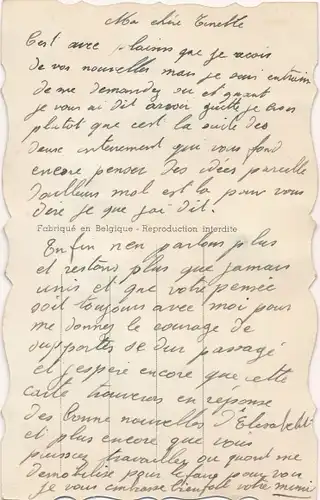 Ma chère Ginette
C'est avec plaisir que je reçois
de vos nouvelles mais je suis entrain
de me demander ou et quant
je vous ai dit d'avoir je crois
plutot que c'est la suite des
deux enterement que vous fond
encore penser des idées pareille
d'ailleurs mol est la pour vous
dire je que j'ai dit.
Fabriqué en Belgique - Reproduction interdite
Enfin n'en parlons plus
et restons plus que jamais
unis et que votre pensée
soit toujours avec moi pour
me donner le courage de
supporter se dur passagé
et j'espère encore que cette
carte trouveras en réponse
des bonne nouvelles d'Elisabeth
et plus encore que vous
puissiez travailler ou quant me
demobilise pour le faire pour vous
je vous embrasse bien fort votre mimi